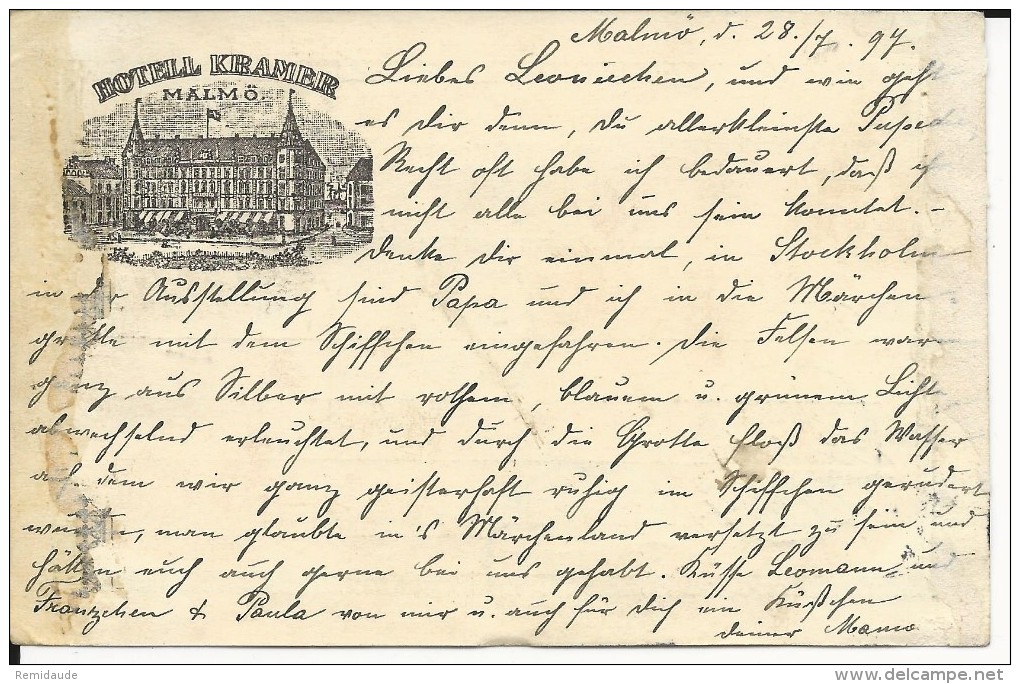 HOTELL KRAMER
MALMÖ.
Malmö, d. 28./7. 97.
Liebes Leonichen, und wie geht
es Dir denn, Du allerkleinste
Recht oft habe ich bedauert, daß ich
nicht alle bei uns sein konntet. –
Denke Dir einmal, in Stockholm
in der Ausstellung sind Papa und ich in die Märchen
grotte mit dem Schiffchen eingefahren. Die Felsen war
ganz aus Silber mit rothem, blauem u. grünem Licht
abwechselnd erleuchtet, und durch die Grotte floß das Wasser
auf dem wir ganz geisterhaft ruhig im Schiffchen gerudert
wurden, man glaubte in's Märchenland versetzt zu sein und
hätten euch auch gerne bei uns gehabt. Küsse Leomann, und
Frantzchen & Paula von mir u. auch für Dich ein Küßchen
deiner Mama
Remidaude
delcampe.net